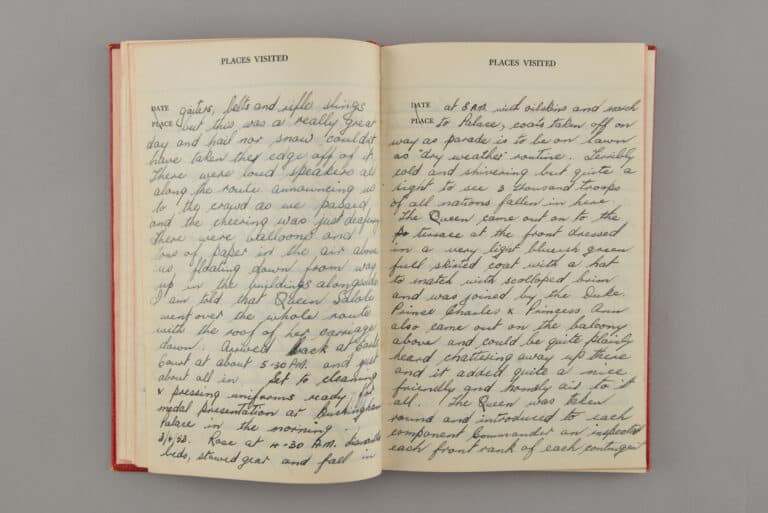 PLACES VISITED
DATE gaiters, belts and rifle slings
PLACE but this was a really great
day and hail nor snow couldn't
have taken they edge off of it.
There were loud speakers all
along the route announcing us
to the crowd as we passed
and the cheering was just deafening
There were balloons and
tons of paper in the air above
us, floating down from way
up in the buildings alongside
I am told that Queen Salote
went over the whole route
with the roof of her carriage
down. Arrived back at Earls
Court at about 5-30 AM. and just
about all in. Set to cleaning
& pressing uniforms ready for
medal presentation at Buckingham
Palace in the morning.
3/6/53. Rose at 4-30 A.M.
beds, stowed gear and fall in
PLACES VISITED
DATE at 8 AM. with oilskins and march
PLACE to Palace, coats taken off on
way as parade is to be on lawn
as "dry weather" routine. Terribly
cold and shivering but quite a
sight to see 3 thousand troops
of all nations fallen in here.
The Queen came out on to the
terrace at the front dressed
in a very light blueish green
full skirted coat with a hat
to match with scolloped brim
and was joined by the Duke.
Prince Charles & Princess Ann
also came out on the balcony
above and could be quite plainly
heard chattering away up there
and it added quite a nice
friendly and homely air to it
all. The Queen was taken
round and introduced to each
component Commander an inspected
each front rank of each contingent